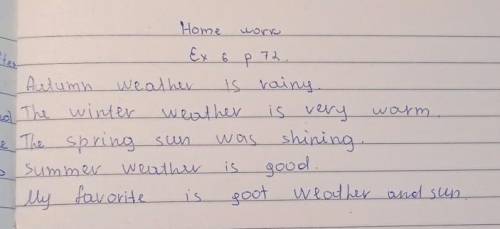 Home work
Ex 6 p 72.
Autumn weather is rainy.
The winter weather is very warm.
The spring sun was shining.
summer weather is good.
My favorite is goot weather and sun.